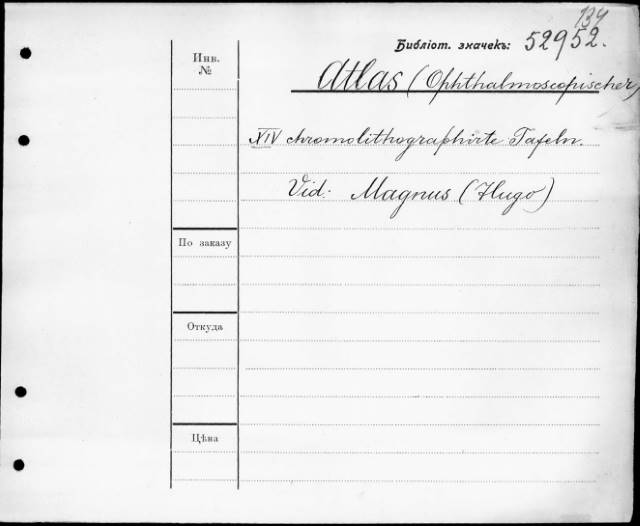 134
Библіот. значекъ: 52952.
Инв.
№
Atlas (Ophthalmoscopischer)
XIV chromolithographirte Tafeln.
Vid: Magnus (Hugo)
По заказу
Откуда
Цѣна